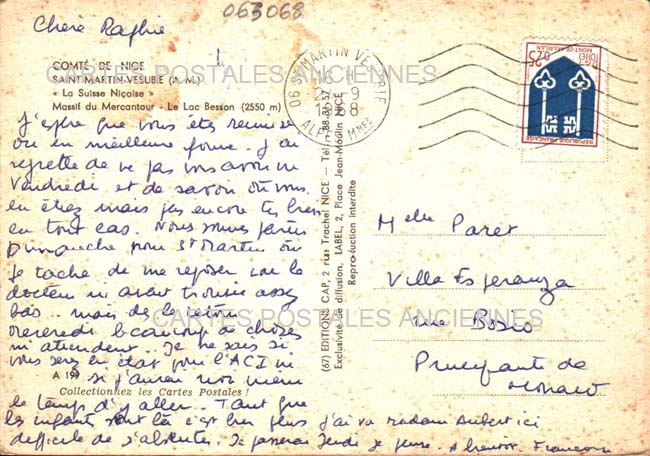 063068
Chère Raphie
COMTÉ DE NICE
SAINT-MARTIN-VÉSUBIE (A.-M.)
« La Suisse Niçoise »
Massif du Mercantour - Le Lac Besson (2550 m)
CARTES POSTALES ANCIENNES
J'espère que vous êtes remise
ou en meilleure forme. J'ai
regretté de ne pas vous avoir vu
Vendredi et de savoir où vous
en êtiez mais pas encore très bien
en tout cas. Nous sommes partis
Dimanche pour St Martin où
je tâche de me reposer car le
docteur m'avait trouvée assez
bas.. mais dès le retour
mercredi beaucoup de choses
m'attendent.. Je ne sais si
vous serez en état pour l'ACI
si j'aurai moi même
A 199
Collectionnez les Cartes Postales !
le temps d'y aller. Tant que
les enfants sont là c'est bien plus
difficile de s'absenter. Je passerai Jeudi je pense.
j'ai vu madame Aubert ici
A bientôt. Françoise
(67) EDITIONS CAP, 2 rue Trachel NICE - Tél. 88-31-57
Exclusivité de diffusion, LABEL, 2, Place Jean-Moulin NICE
Reproduction interdite
06 ST MARTIN VESUBIE
ALPES MMES
1968
0,25
MONT-DE-MARSAN
REPUBLIQUE FRANÇAISE
Melle Paret
Villa Esperanza
rue Bosio
Principauté de
Monaco
CARTES POSTALES ANCIENNES